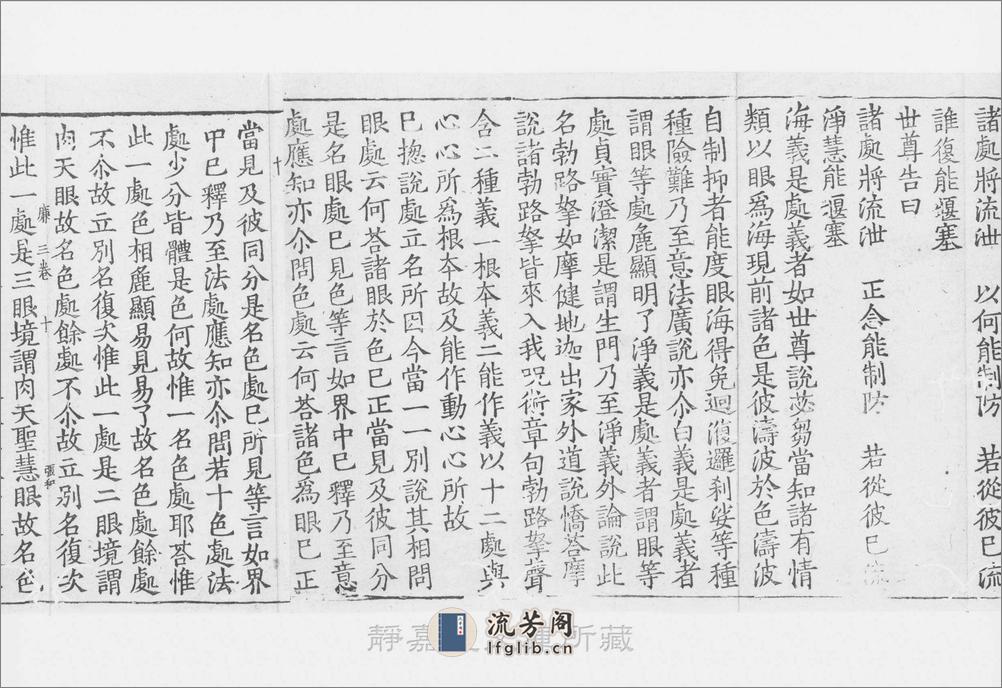 諸處將流泄　以何能制防　若從彼已流
誰復能堰塞
世尊告曰
諸處將流泄　正念能制防　若從彼已流
淨慧能堰塞
海義是處義者如世尊說苾芻當知諸有情
類以眼爲海現前諸色是彼濤波於色濤波
自制抑者能度眼海得免迴澓邏刹娑等種
種險難乃至意法廣說亦尒白義是處義者
謂眼等處麁顯明了淨義是處義者謂眼等
處貞實澄潔是謂生門乃至淨義外論說此
名勃路拏如摩健地迦出家外道說憍荅摩
說諸勃路拏皆來入我呪術章句勃路拏聲
含二種義一根本義二能作義以十二處與
心心所爲根本故及能作動心心所故
已揔說處立名所因今當一一別說其相問
眼處云何荅諸眼於色已正當見及彼同分
是名眼處已見色等言如界中已釋乃至意
處應知亦尒問色處云何荅諸色爲眼已正
十
當見及彼同分是名色處已所見等言如界
中已釋乃至法處應知亦尒問若十色處法
處少分皆體是色何故惟一名色處耶荅惟
此一處色相麁顯易見易了故名色處餘處
不尒故立別名復次惟此一處是二眼境謂
肉天眼故名色處餘處不尒故立別名復次
廉　三卷　十　張和
惟此一處是三眼境謂肉天聖慧眼故名色
靜嘉　所藏
流芳阁
lfglib.cn